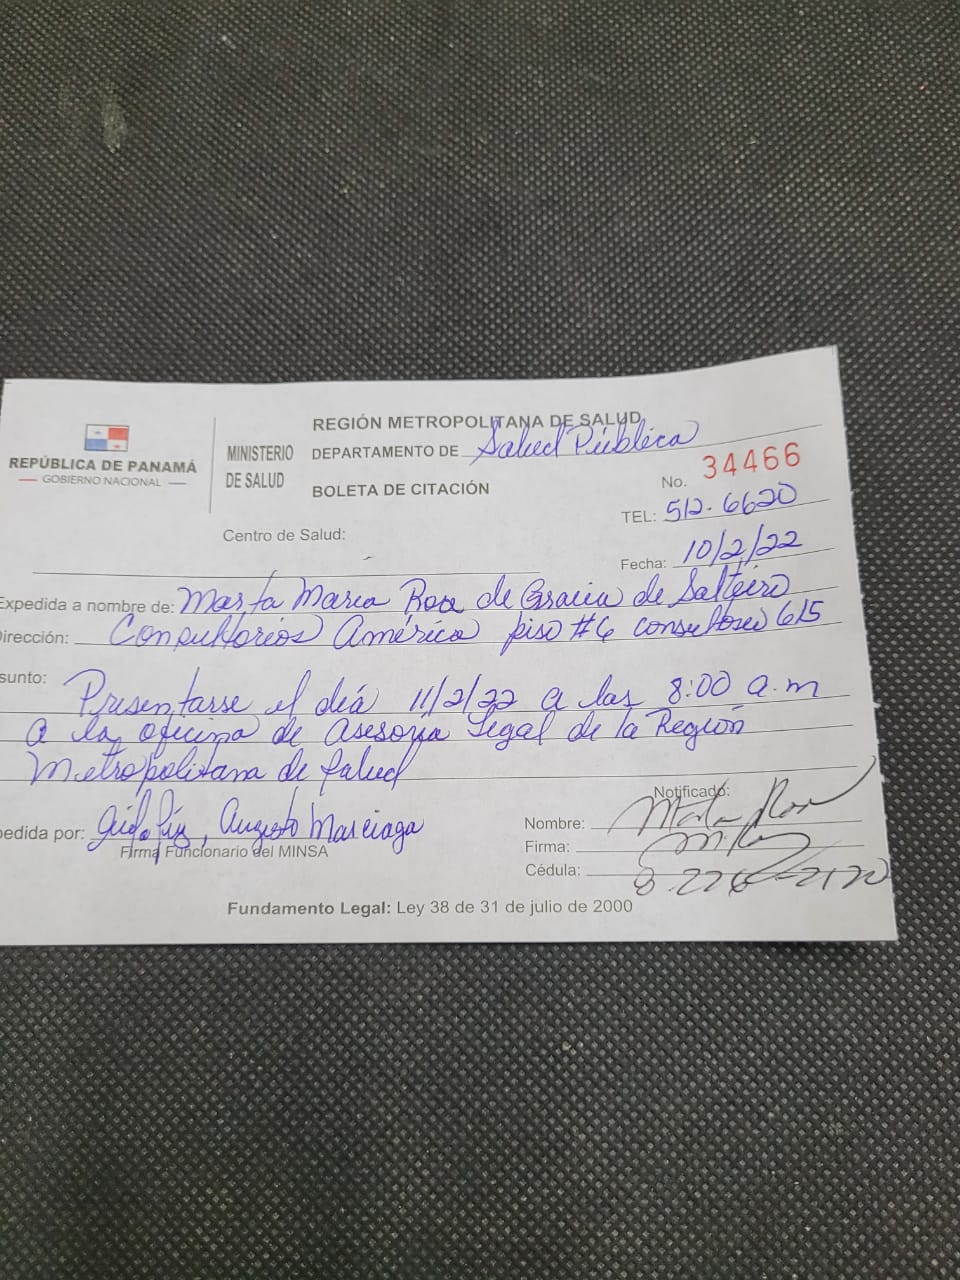 REGIÓN METROPOLITANA DE SALUD
REPÚBLICA DE PANAMÁ
— GOBIERNO NACIONAL —
MINISTERIO
DE SALUD
DEPARTAMENTO DE Salud Pública
BOLETA DE CITACIÓN
No. 34466
TEL: 512-6620
Centro de Salud:
Fecha: 10/2/22
Expedida a nombre de: Marta María Roa de Gracia de Salteiro
Dirección: Consultorios América piso #6 consultorio 615
sunto: Presentarse el día 11/2/22 a las 8:00 a.m
a la oficina de Asesoria Legal de la Región
Metropolitana de Salud
pedida por: Augusto Marciaga
Firma Funcionario del MINSA
Notificado:
Nombre: Marta Roa
Firma:
Cédula:
Fundamento Legal: Ley 38 de 31 de julio de 2000